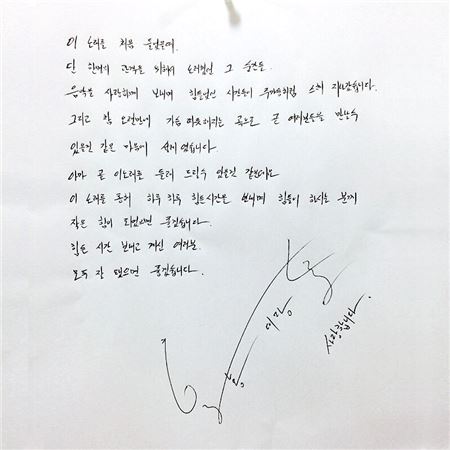 이 노래를 처음 들었을때.
단 한명의 관객을 위해서 노래했던 그 순간들.
음악을 사랑하게 보내며 힘들었던 시간들이 주마등처럼 스쳐 지나갔습니다.
그리고 참 오랜만에 가슴 따뜻해지는 곡으로 곧 여러분들을 만날수
있을것 같은 마음에 설레였습니다.
아마 곧 이노래를 들려 드릴수 있을것 같은데요
이 노래를 통해 하루 하루 힘든시간을 보내며 힘들어 하시는 분께
작은 힘이 되었으면 좋겠습니다.
힘든 시간 보내고 계신 여러분.
모두 잘 됐으면 좋겠습니다.
사랑합니다.